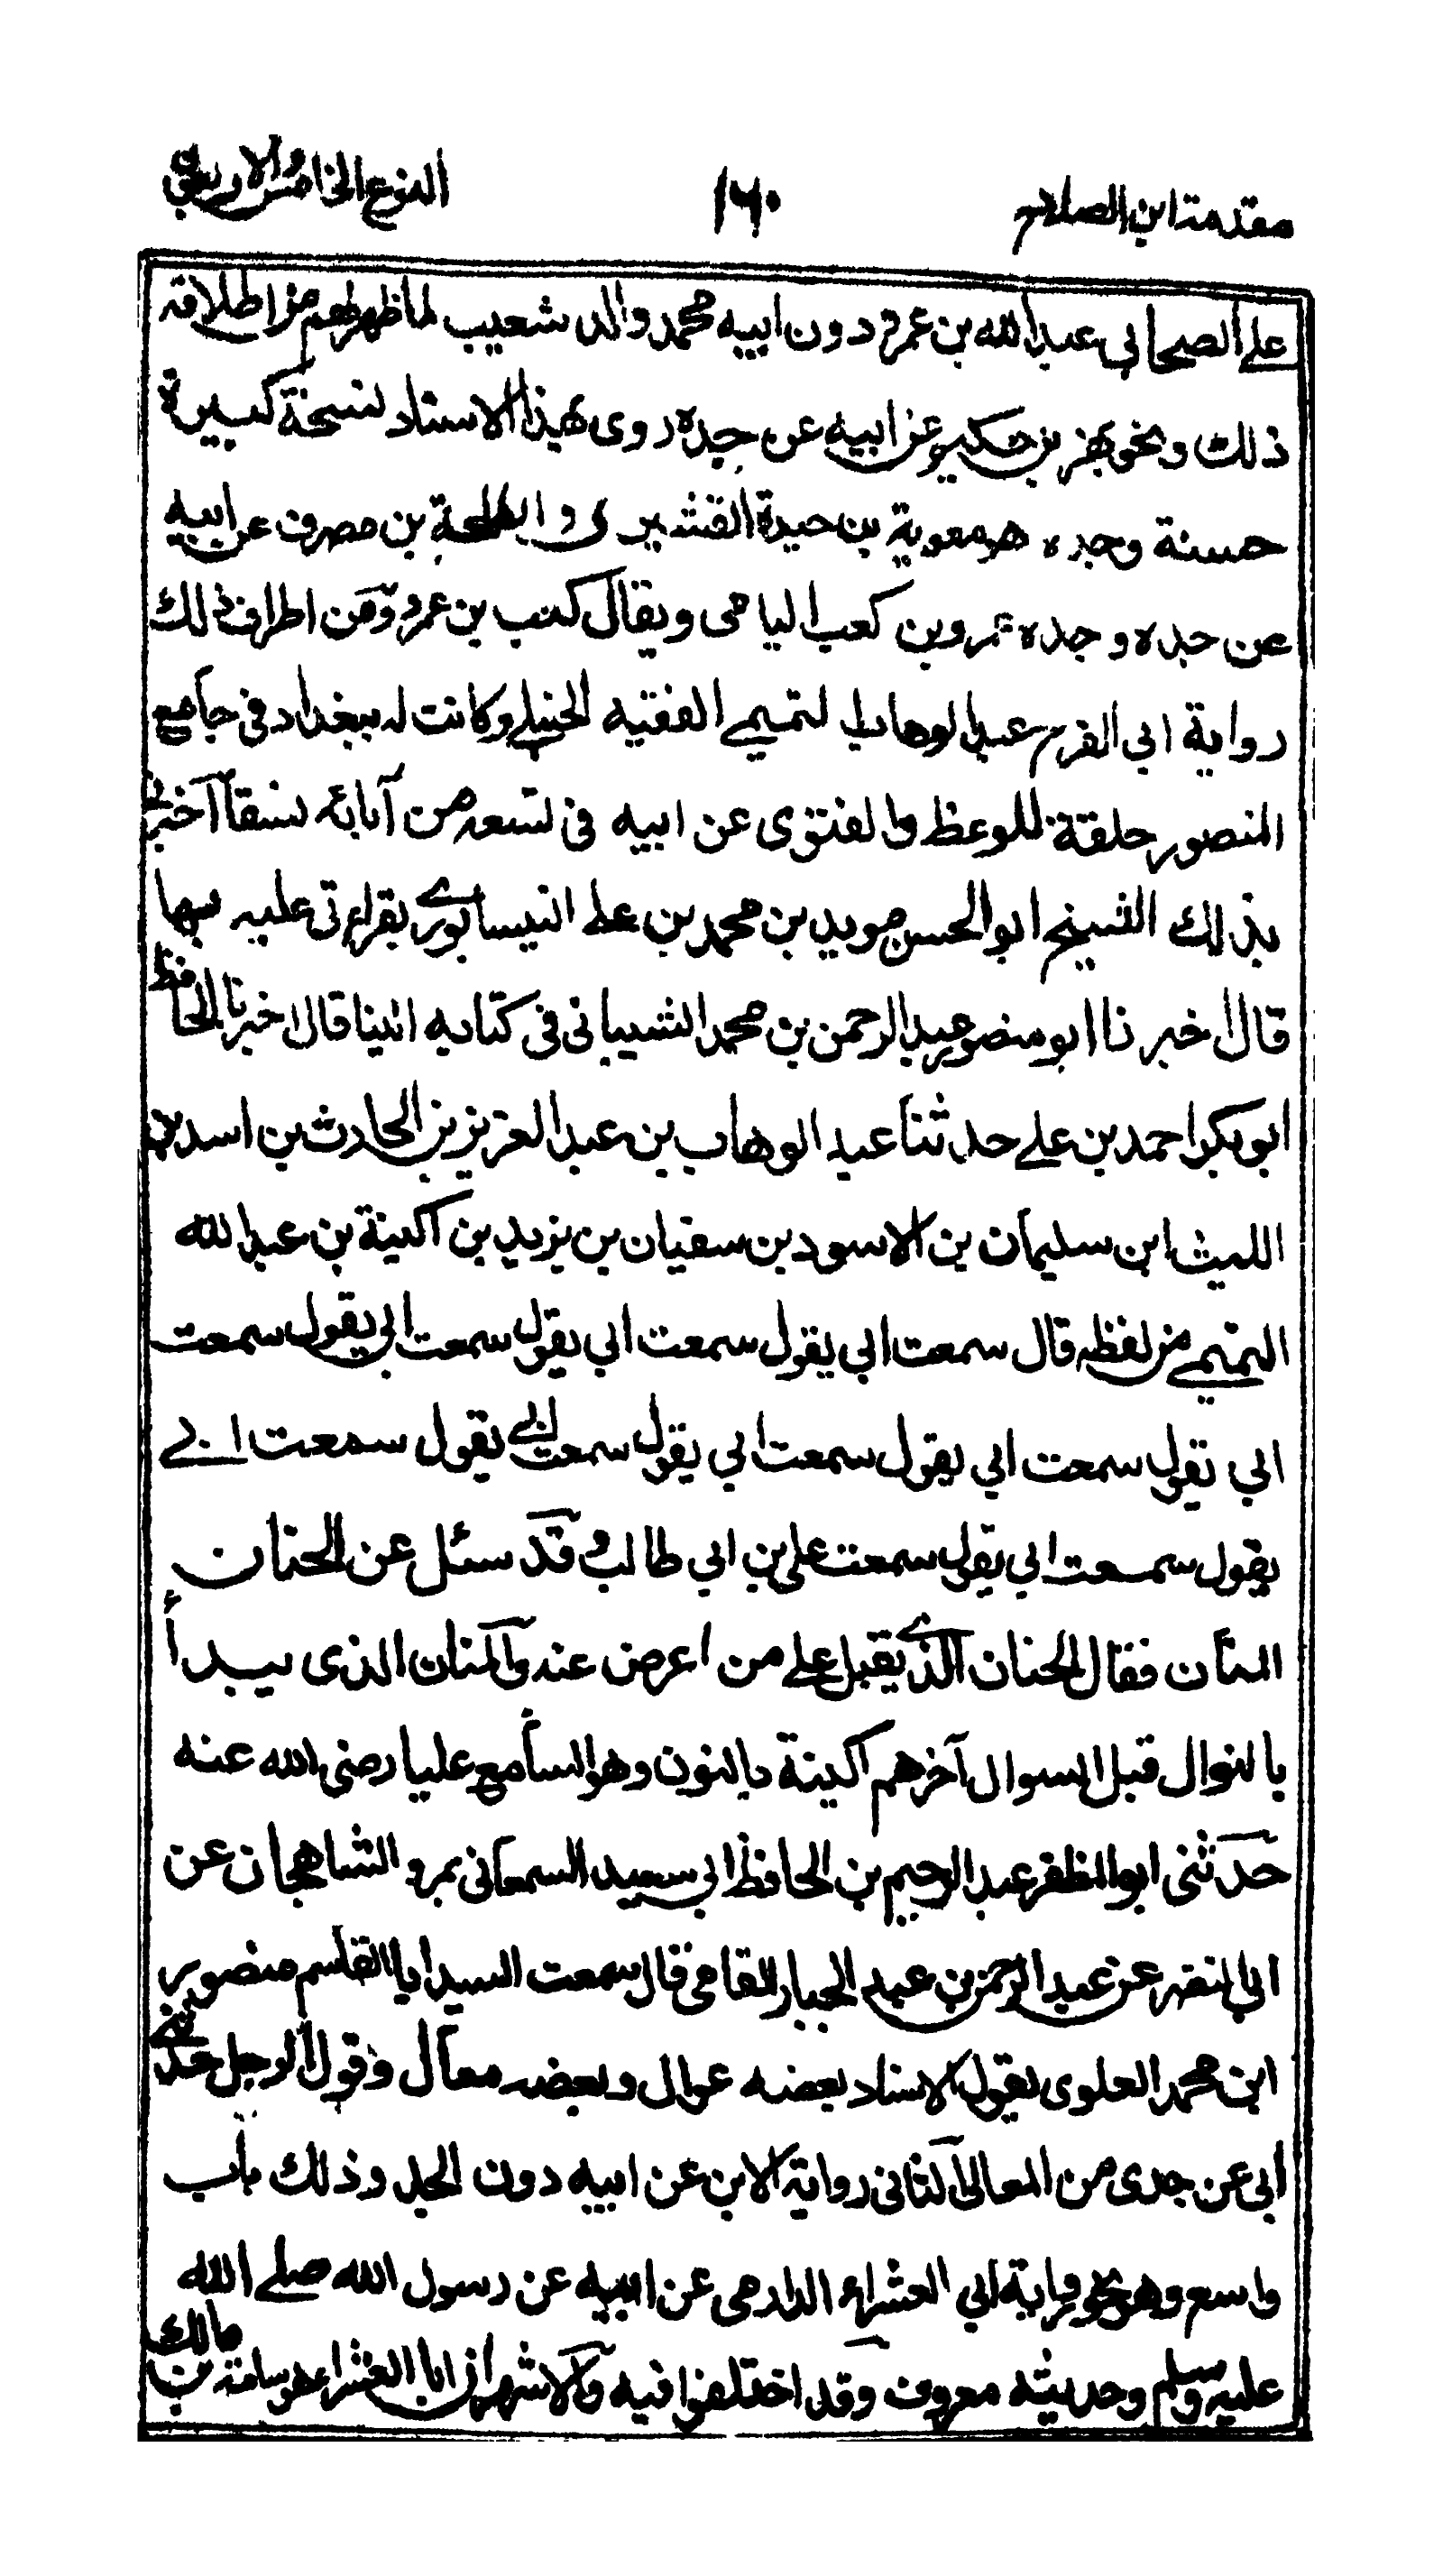 مقدمة ابن الصلاح ١٦٠ النوع الخامس والاربعون
على الصحابي عبد الله بن عمرو دون ابيه محمد والد شعيب لما ظهر لهم من اطلاقه
ذلك ونحو بهز بن حكيم عن ابيه عن جده روى بهذا الاسناد نسخة كبيرة
حسنة وجده هو معوية بن حيدة القشيرى و طلحة بن مصرف عن ابيه
عن جده وجده عمرو بن كعب اليامى ويقال كعب بن عمرو ومن اطراف ذلك
رواية ابى الفرج عبد الوهاب التميمے الفقيه الحنبلے وكانت له ببغداد فى جامع
المنصور حلقة للوعظ والفتوى عن ابيه فى تسعة من آبائه نسقا اخبرنى
بذلك الشيخ ابو الحسن مويد بن محمد بن على النيسابورے بقراءتى عليه بها
قال اخبرنا ابو منصور عبد الرحمن بن محمد الشيبانى فى كتابه الينا قال اخبرنا الحافظ
ابو بكر احمد بن على حدثنا عبد الوهاب بن عبد العزيز بن الحارث بن اسد بن
الليث ابن سليمان بن الاسود بن سفيان بن يزيد بن اكينة بن عبد الله
التميمے من لفظه قال سمعت ابي يقول سمعت ابي يقول سمعت ابي يقول سمعت
ابي يقول سمعت ابي يقول سمعت ابي يقول سمعت ابے يقول سمعت ابے
يقول سمعت ابي يقول سمعت على بن ابي طالب وقد سئل عن الحنان
المنان فقال الحنان الذے يقبل على من اعرض عنه والمنان الذى يبدأ
بالنوال قبل السوال آخرهم اكينة بالنون وهو السامع عليا رضى الله عنه
حدثنى ابو المظفر عبد الرحيم بن الحافظ ابي سعيد السمعانى بمرو الشاهجان عن
ابي النضر عن عبد الرحمن بن عبد الجبار الفامى قال سمعت السيد ابا القاسم منصور
ابن محمد العلوى يقول الاسناد بعضه عوال وبعضه معال وقول الرجل حدثنے
أبى عن جدى من المعالى الثانى رواية الابن عن ابيه دون الجد وذلك باب
واسع وهو نحو رواية ابي العشراء الدارمى عن ابيه عن رسول الله صلے الله
عليه وسلم وحديثه معروف وقد اختلفوا فيه والاشهر ان ابا العشراء هو اسامة بن مالك